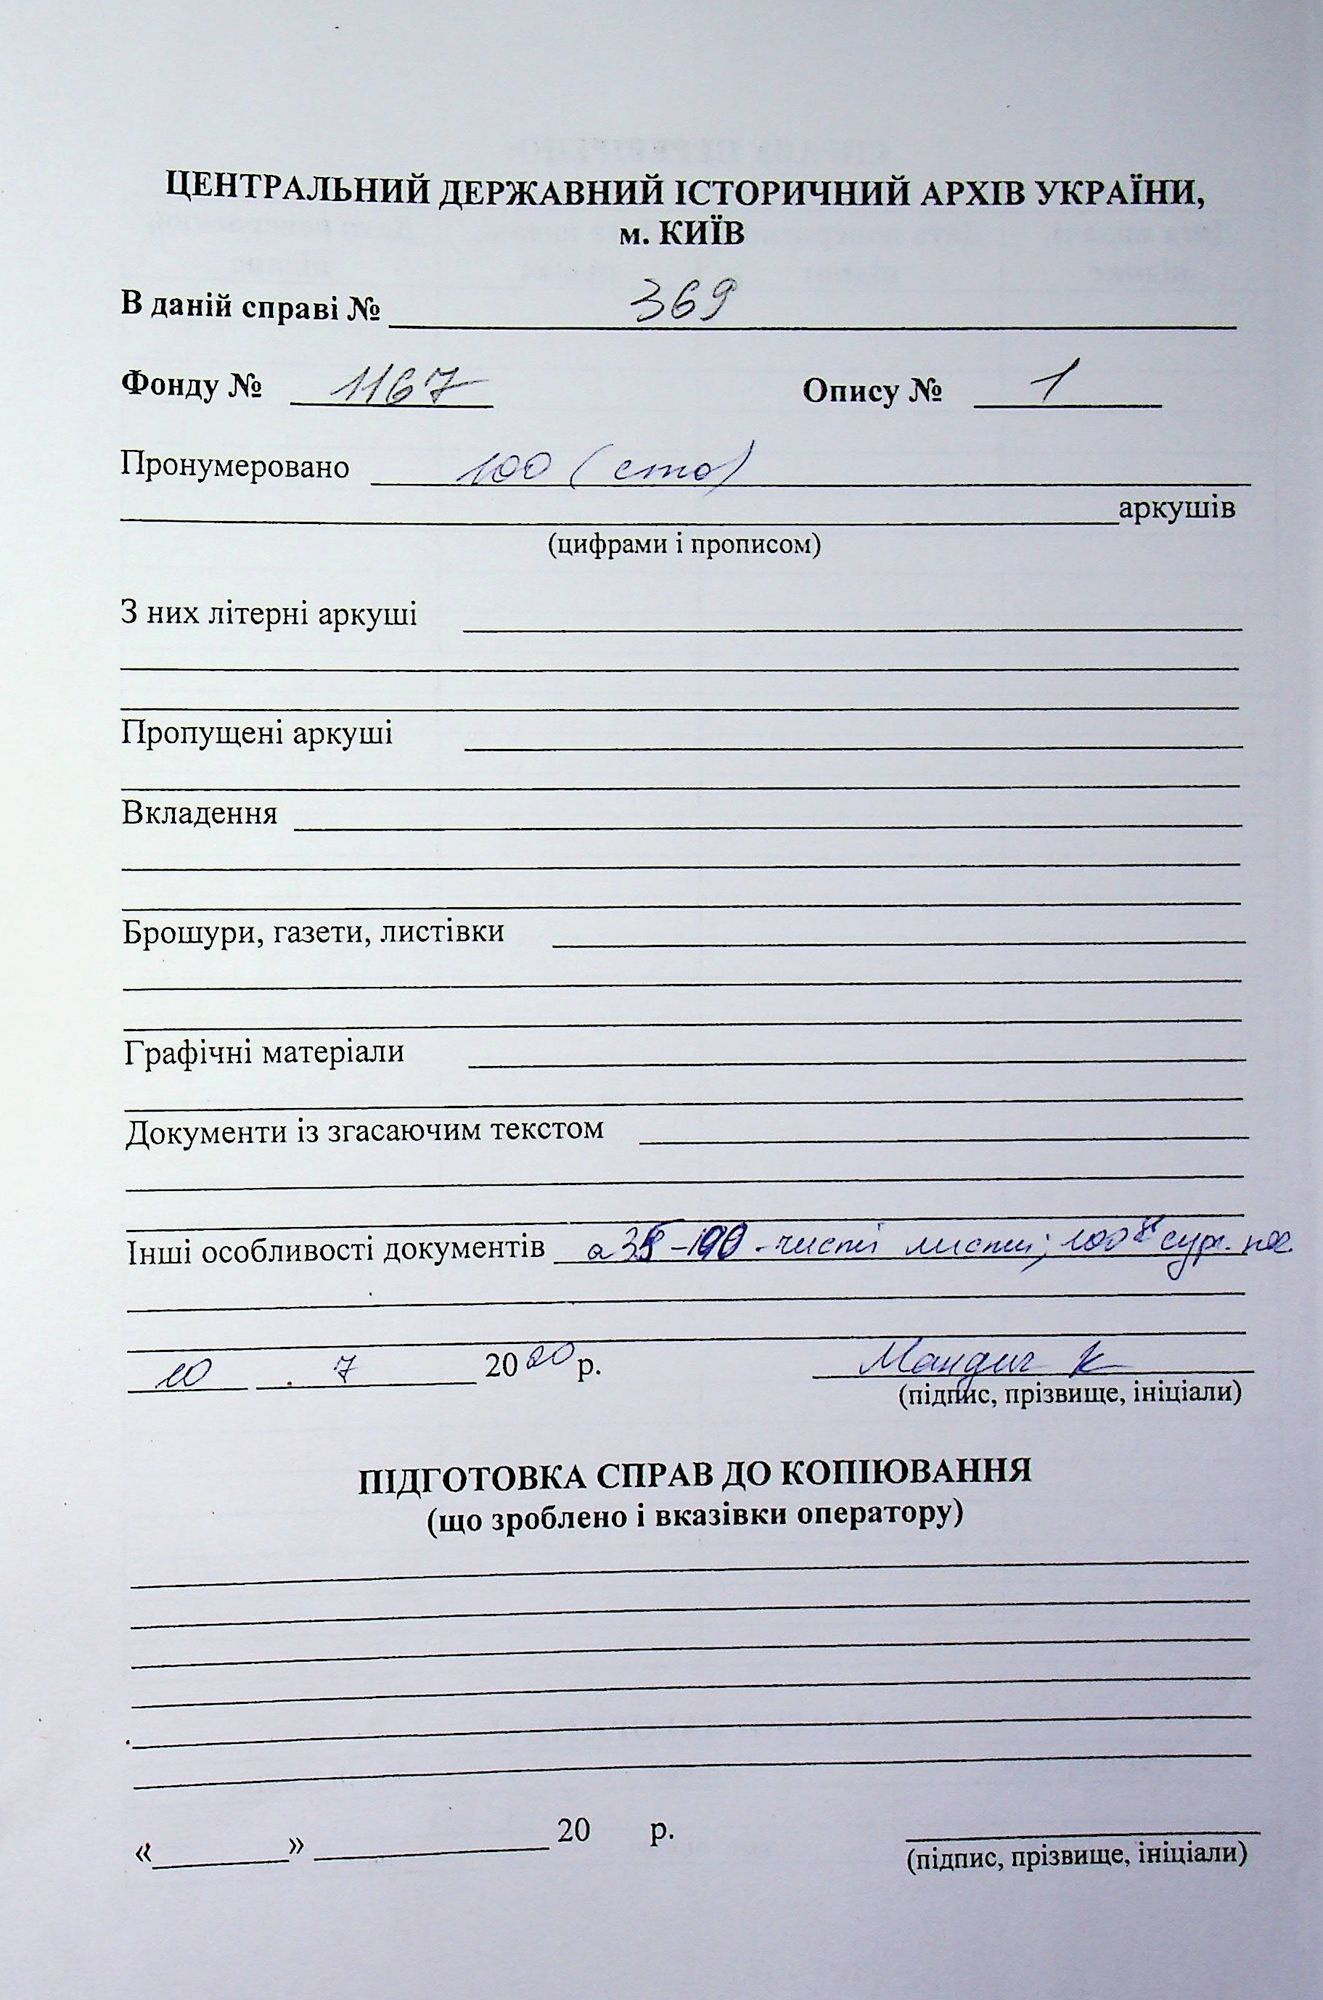 ЦЕНТРАЛЬНИЙ ДЕРЖАВНИЙ ІСТОРИЧНИЙ АРХІВ УКРАЇНИ,
м. КИЇВ
В даній справі № 369
Фонду № 1167 Опису № 1
Пронумеровано 100 (сто)
аркушів
(цифрами і прописом)
З них літерні аркуші
Пропущені аркуші
Вкладення
Брошури, газети, листівки
Графічні матеріали
Документи із згасаючим текстом
Інші особливості документів - чисті листи;
10 . 7 2020 р. Мандич К
(підпис, прізвище, ініціали)
ПІДГОТОВКА СПРАВ ДО КОПІЮВАННЯ
(що зроблено і вказівки оператору)
« » 20 р.
(підпис, прізвище, ініціали)